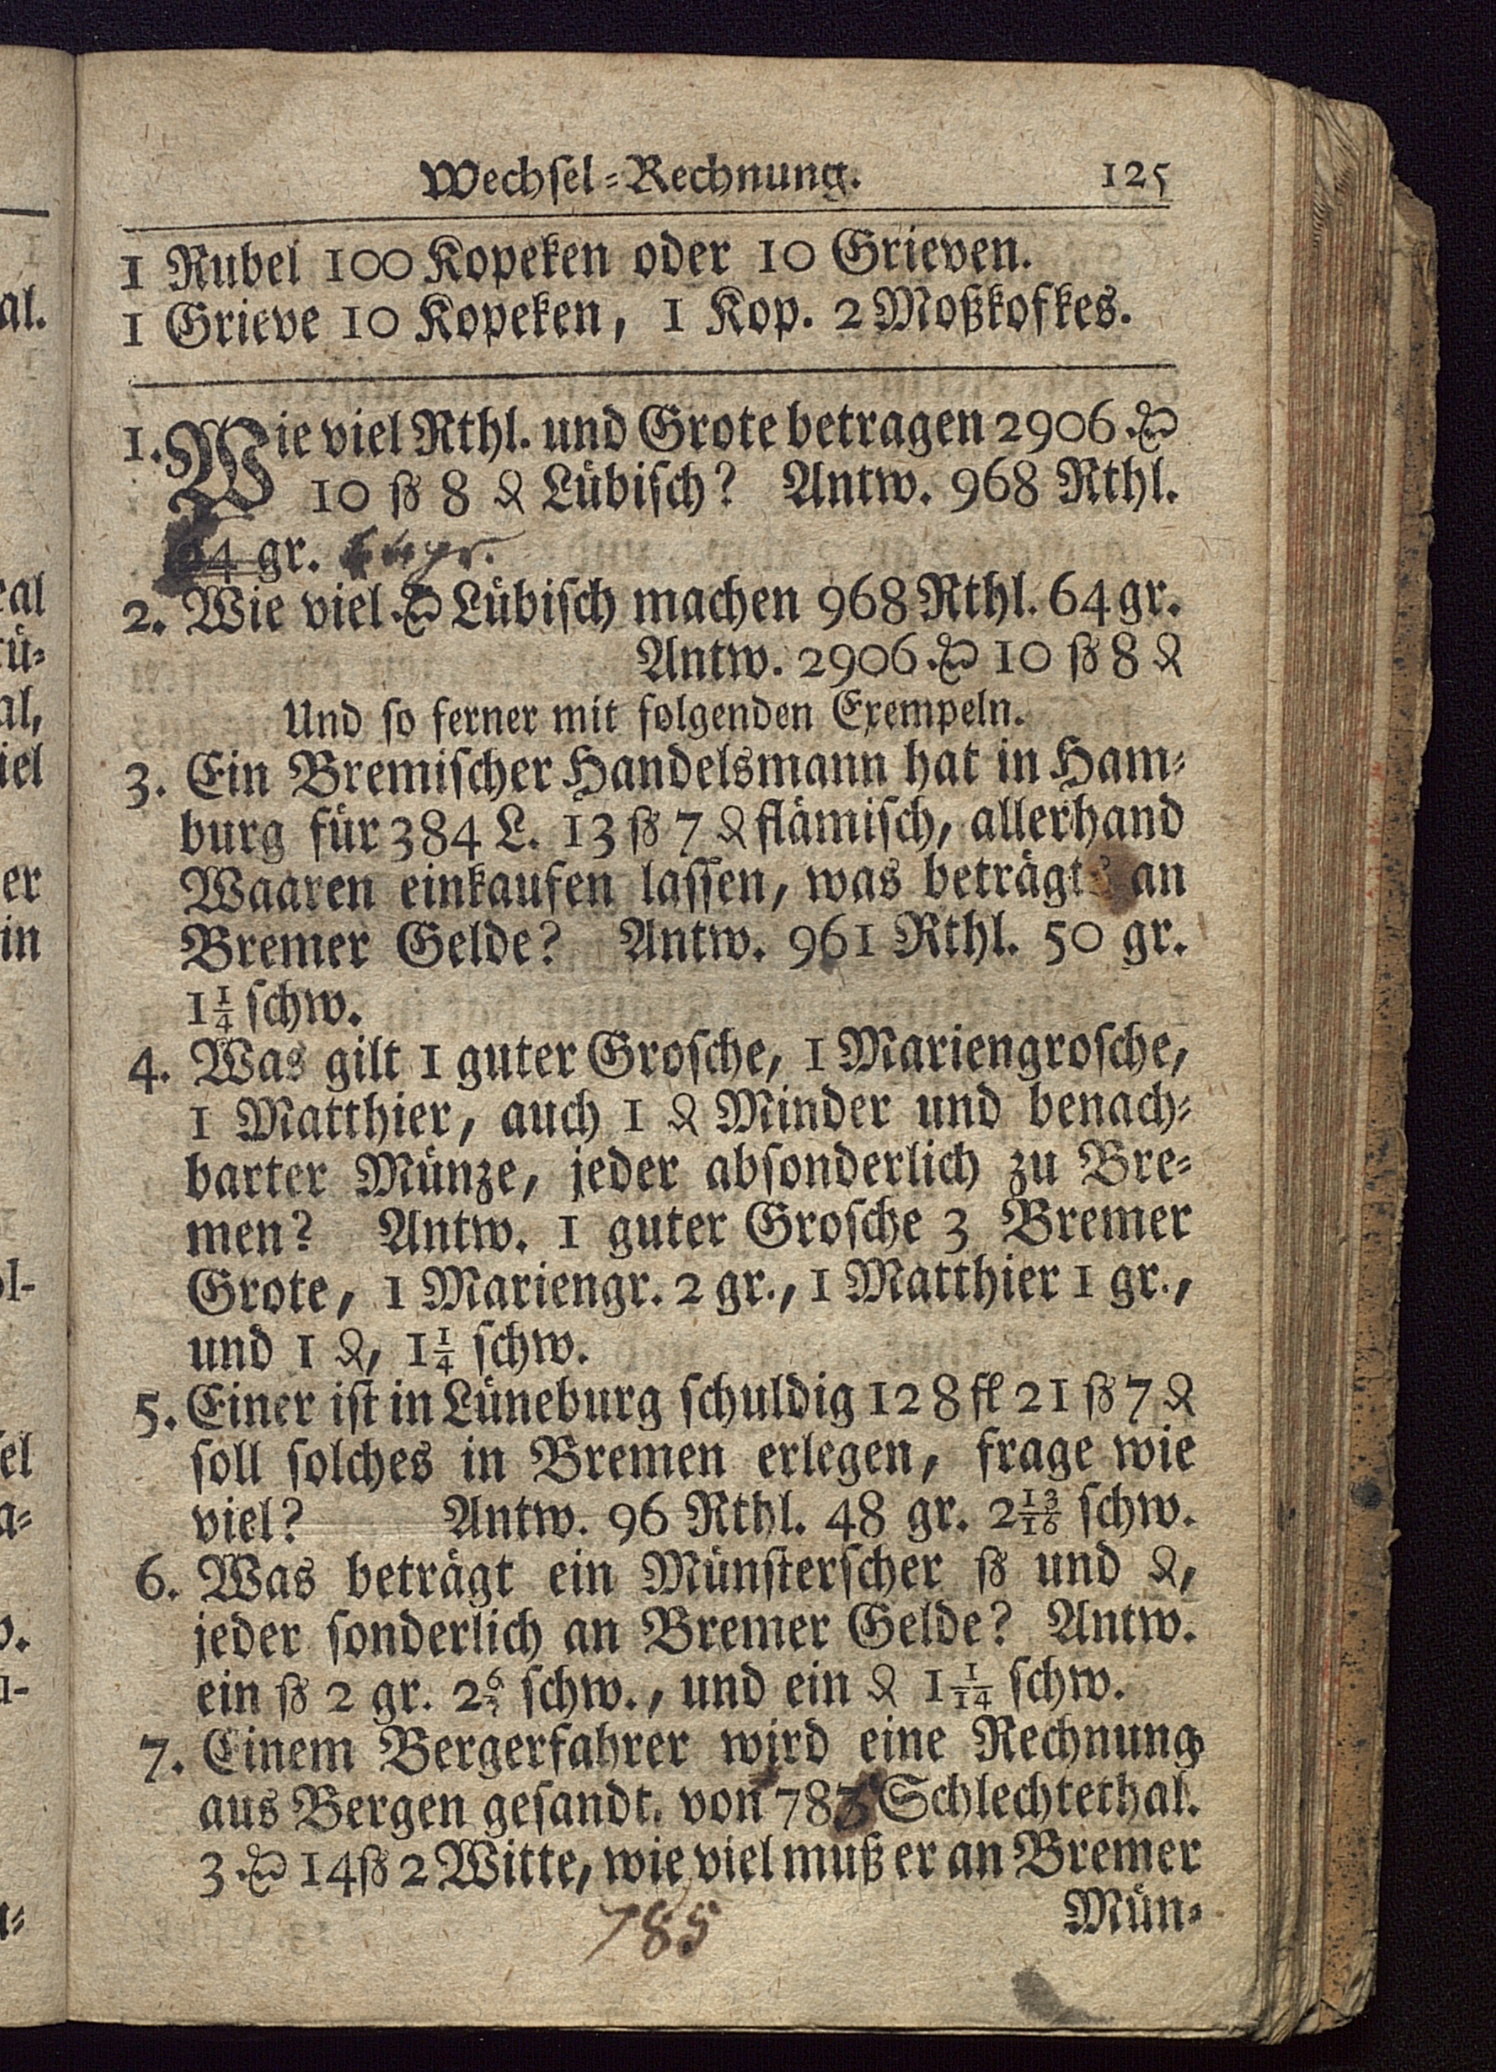 Wechsel-Rechnung. 125
1 Rubel 100 Kopeken oder 10 Grieven.
1 Grieve 10 Kopeken, 1 Kop. 2 Moßkofkes.
1. Wie viel Rthl. und Grote betragen 2906 ₥
10 ß 8 ₰ Lübisch? Antw. 968 Rthl.
64 gr.
2. Wie viel ₥ Lübisch machen 968 Rthl. 64 gr.
Antw. 2906 ₥ 10 ß 8 ₰
Und so ferner mit folgenden Exempeln.
3. Ein Bremischer Handelsmann hat in Ham-
burg für 384 L. 13 ß 7 ₰ flämisch, allerhand
Waaren einkaufen lassen, was beträgts an
Bremer Gelde? Antw. 961 Rthl. 50 gr.
1 1/4 schw.
4. Was gilt 1 guter Grosche, 1 Mariengrosche,
1 Matthier, auch 1 ₰ Minder und benach-
barter Münze, jeder absonderlich zu Bre-
men? Antw. 1 guter Grosche 3 Bremer
Grote, 1 Mariengr. 2 gr., 1 Matthier 1 gr.,
und 1 ₰, 1 1/4 schw.
5. Einer ist in Lüneburg schuldig 128 fl 21 ß 7 ₰
soll solches in Bremen erlegen, frage wie
viel? Antw. 96 Rthl. 48 gr. 2 13/16 schw.
6. Was beträgt ein Münsterscher ß und ₰,
jeder sonderlich an Bremer Gelde? Antw.
ein ß 2 gr. 2 6/7 schw., und ein ₰ 1 1/14 schw.
7. Einem Bergerfahrer wird eine Rechnung
aus Bergen gesandt. von 783 Schlechtethal.
3 ₥ 14 ß 2 Witte, wie viel muß er an Bremer
785
Mün-
al.
eal
rü-
al,
iel
er
in
ol-
sel
a-